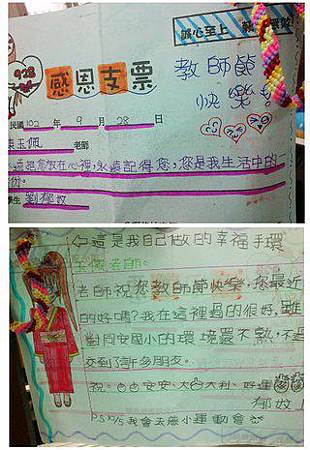 誠心至上
928
感恩支票
教師節
快樂!
民國102 年 9 月 28 日
玉佩 老師
恩放在心裡,永遠記得您,您是我生活中的
份。
劉郁妏
⇦這是我自己做的幸福手環
老師:
老師祝您教師節快樂,您最近
的好嗎?我在這裡過的很好,雖
對同安國小的環境還不熟,不過
交到了許多朋友。
祝:平平安安、大吉大利、好運
郁妏
P.S 10/5我會去 小運動會